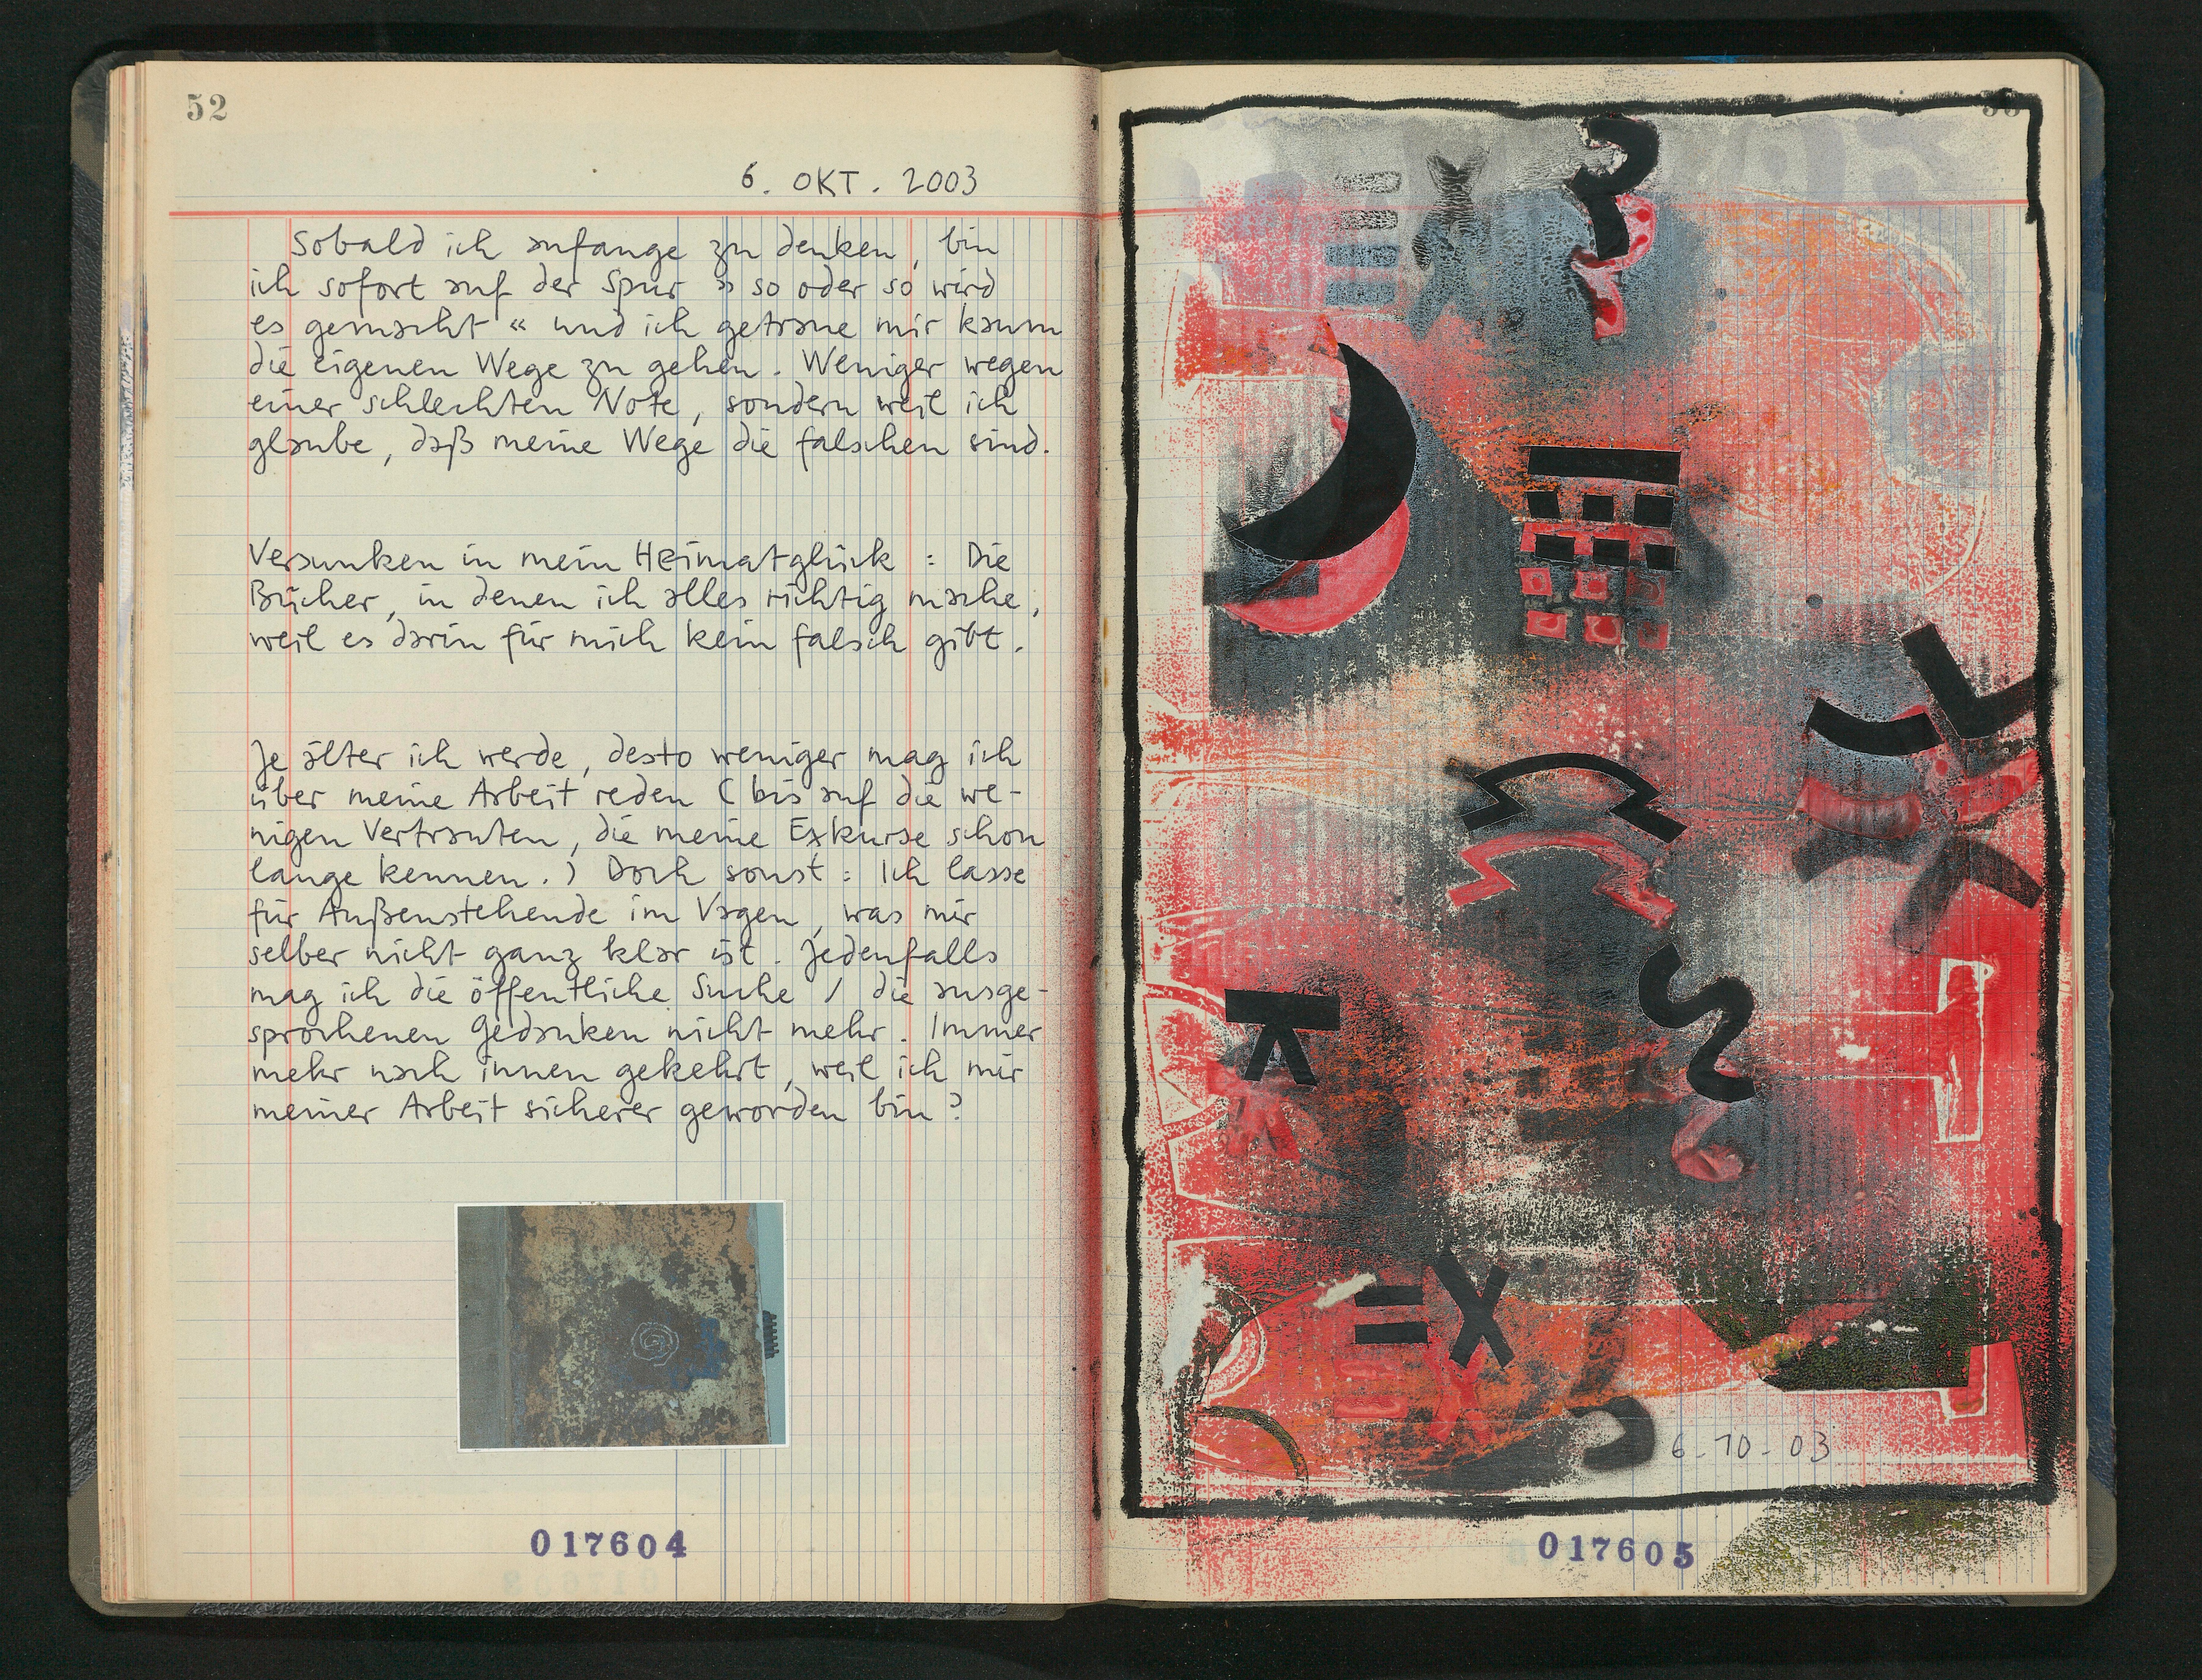 52
6. OKT. 2003
Sobald ich anfange zu denken, bin
ich sofort auf der Spur » so oder so wird
es gemacht « und ich getraue mir kaum
die eigenen Wege zu gehen. Weniger wegen
einer schlechten Note, sondern weil ich
glaube, daß meine Wege die falschen sind.
Versunken in mein Heimatglück : Die
Bücher, in denen ich alles richtig mache,
weil es darin für mich kein falsch gibt.
Je älter ich werde, desto weniger mag ich
über meine Arbeit reden ( bis auf die we-
nigen Vertrauten, die meine Exkurse schon
lange kennen. ) Doch sonst : Ich lasse
für Außenstehende im Vagen, was mir
selber nicht ganz klar ist. Jedenfalls
mag ich die öffentliche Suche / die ausge-
sprochenen Gedanken nicht mehr. Immer
mehr nach innen gekehrt, weil ich mir
meiner Arbeit sicherer geworden bin ?
017604
6-10-03
017605